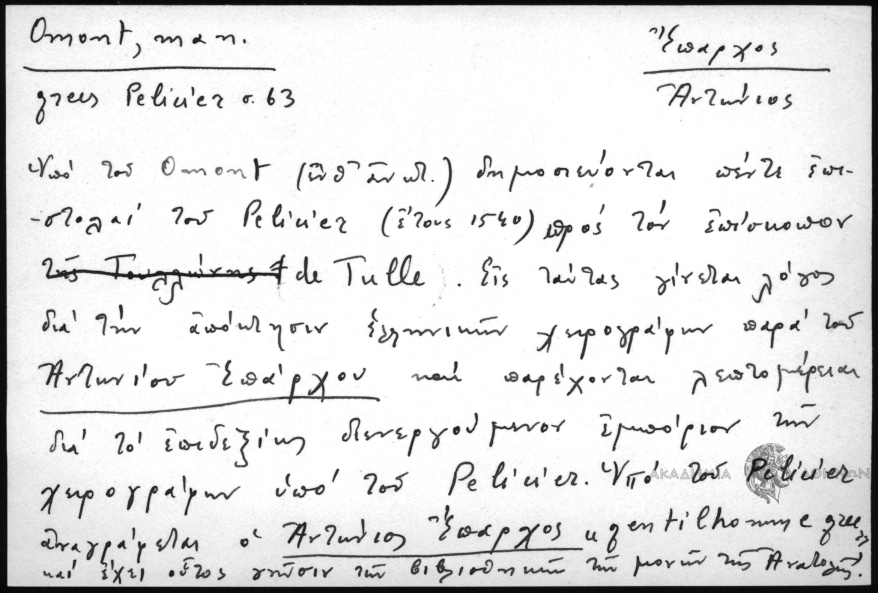 Omont, man. Ἔπαρχος
grecs Pelicier σ. 63 Ἀντώνιος
Ὑπό τοῦ Omont (ἔνθ' ἀνωτ.) δημοσιεύονται πέντε ἐπι-
-στολαί τοῦ Pelicier (ἔτους 1540) πρός τόν ἐπίσκοπον
τῆς de Tulle. Εἰς ταύτας γίνεται λόγος
διά τήν ἀπόκτησιν ἑλληνικῶν χειρογράφων παρά τοῦ
Ἀντωνίου Ἐπάρχου καί παρέχονται λεπτομέρειαι
διά τό ἐπιδεξίως διενεργούμενον ἐμπόριον τῶν
χειρογράφων ὑπό τοῦ Pelicier. Ὑπό τοῦ Pelicier
ΑΚΑΔΗΜΙΑ ΑΘΗΝΩΝ
ἀναγράφεται ὁ Ἀντώνιος Ἔπαρχος « gentilhomme grec »
καί ἔχει οὗτος γνῶσιν τῶν βιβλιοθηκῶν τῶν μονῶν τῆς Ἀνατολῆς.